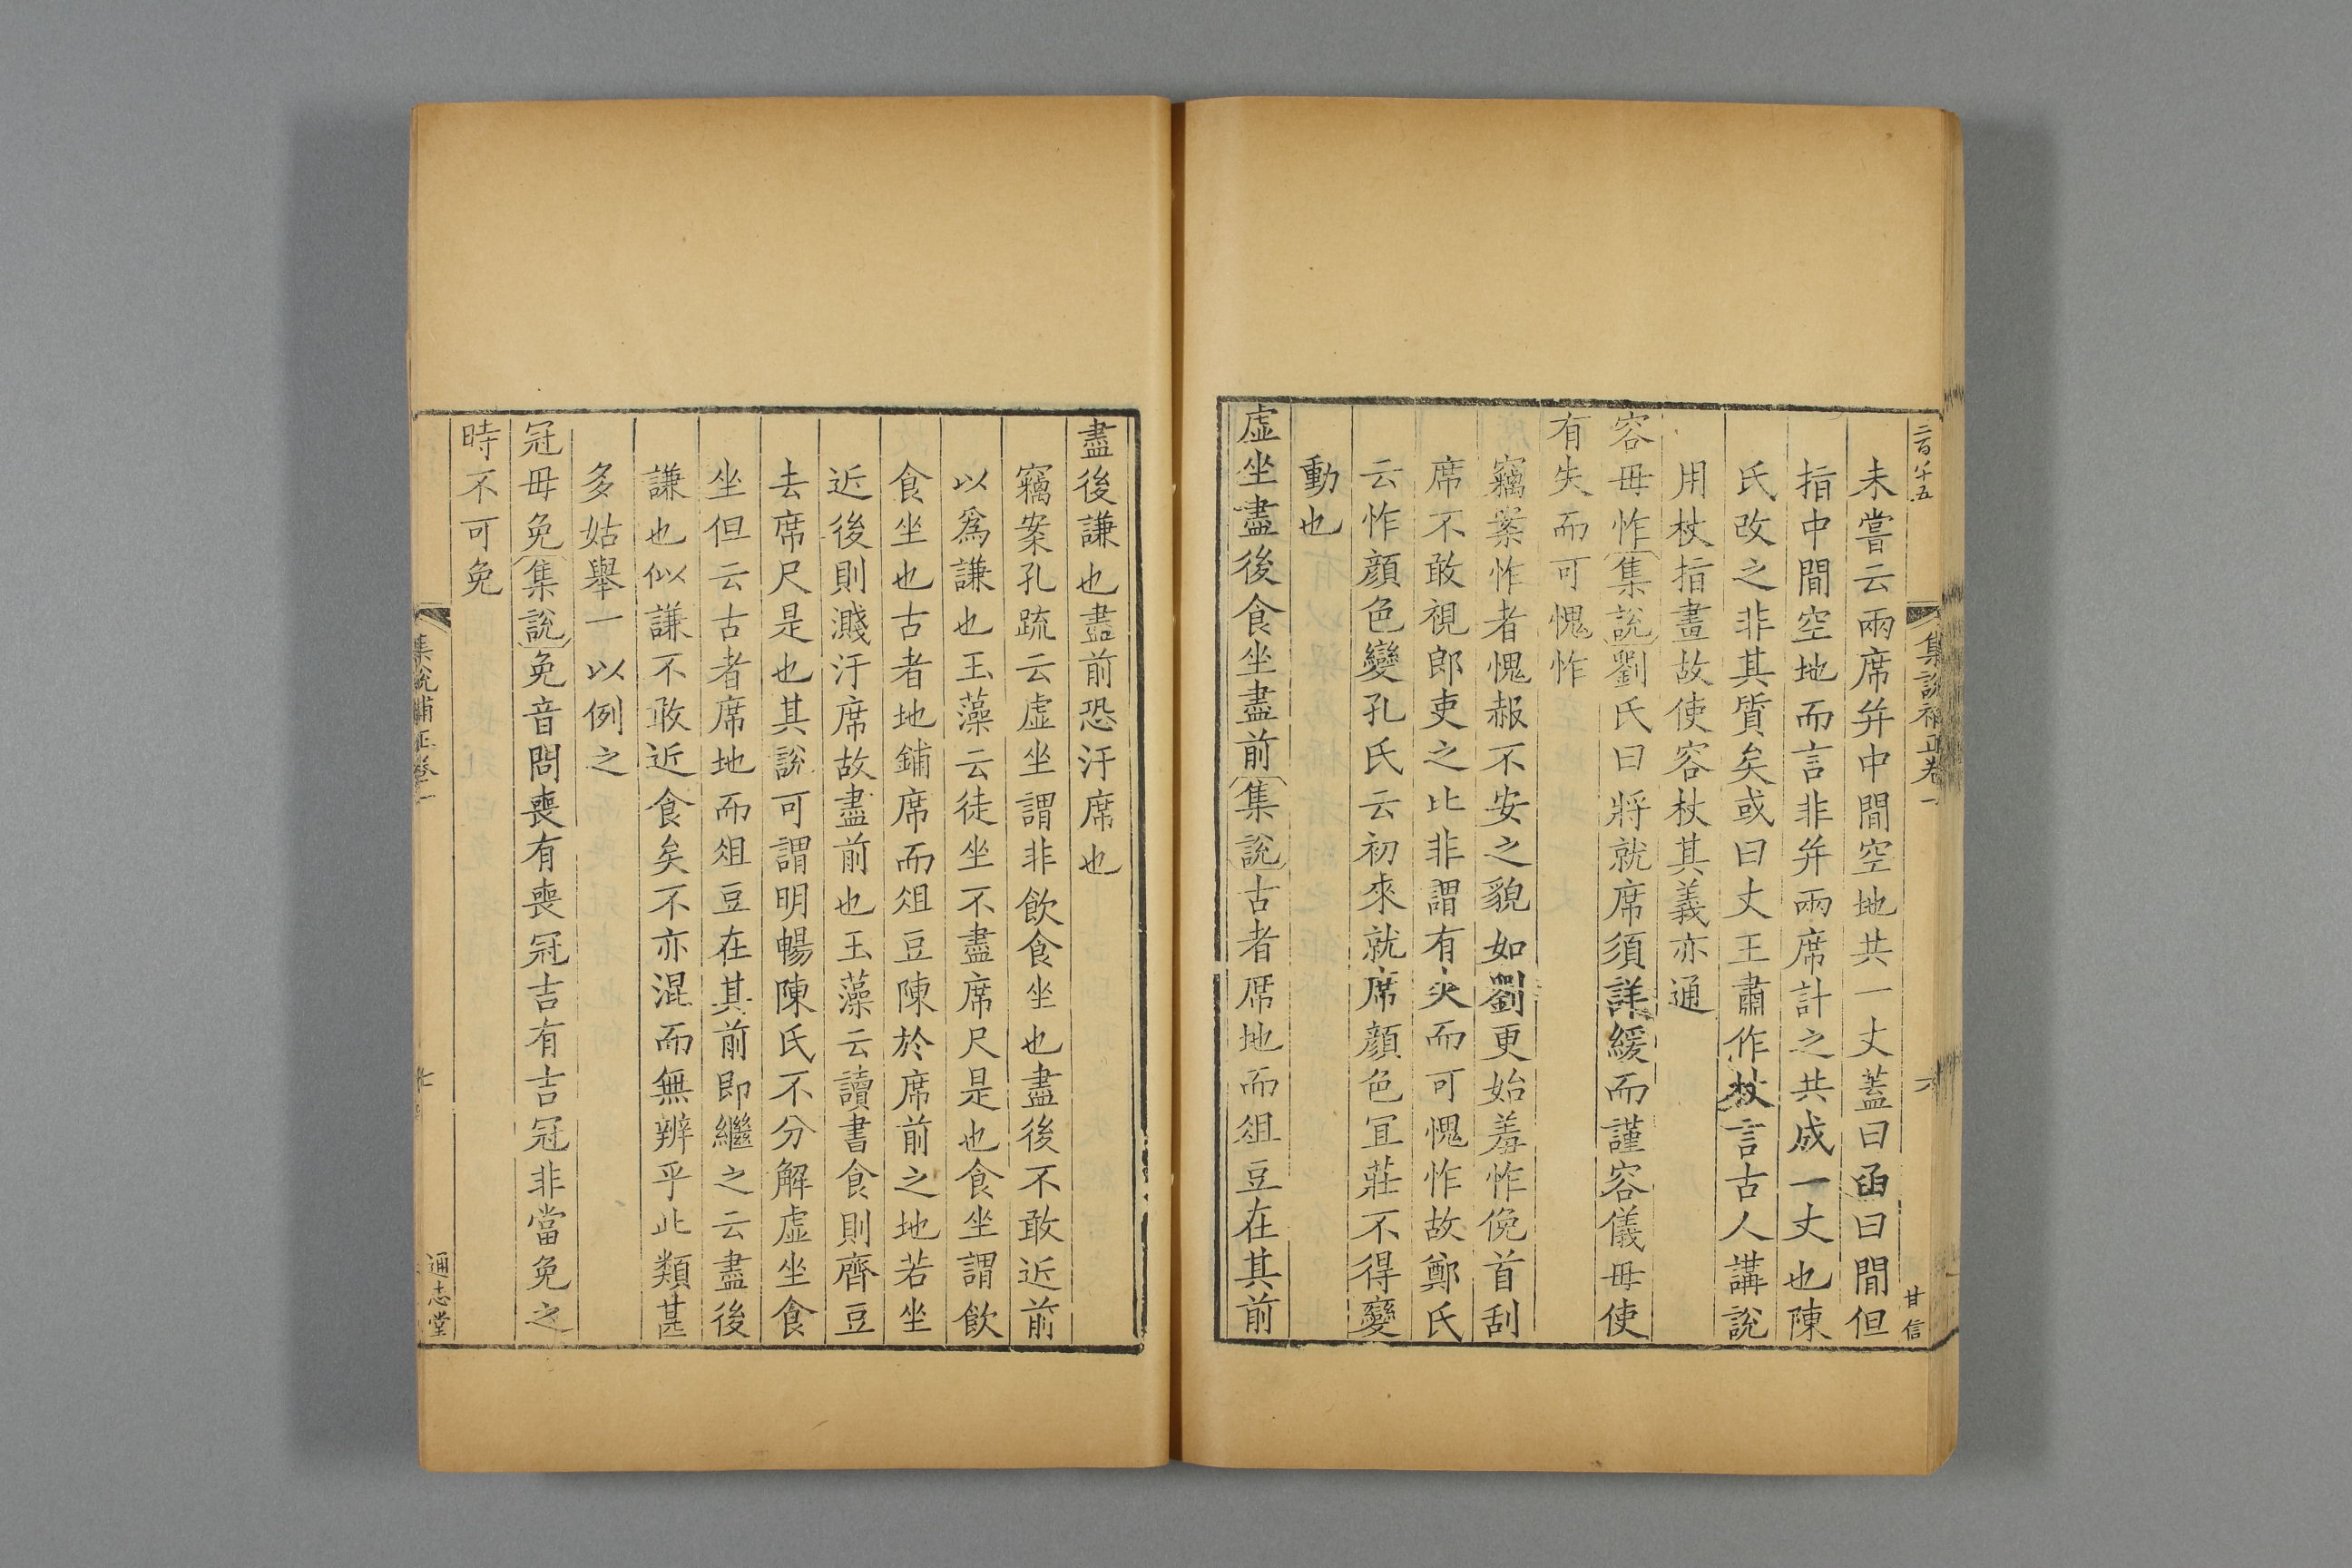 集說補正卷一
六
甘信
未嘗云兩席并中間空地共一丈蓋曰函曰間但
指中間空地而言非并兩席計之共成一丈也陳
氏改之非其質矣或曰丈王肅作杖言古人講說
用杖指畫故使容杖其義亦通
容毋怍集說劉氏曰將就席須詳緩而謹容儀毋使
有失而可愧怍
竊案怍者愧赧不安之貌如劉更始羞怍俛首刮
席不敢視郎吏之比非謂有失而可愧怍故鄭氏
云怍顔色變孔氏云初來就席顔色宜莊不得變
動也
虛坐盡後食坐盡前集說古者席地而俎豆在其前
盡後謙也盡前恐汙席也
竊案孔疏云虛坐謂非飲食坐也盡後不敢近前
以爲謙也玉藻云徒坐不盡席尺是也食坐謂飲
食坐也古者地鋪席而俎豆陳於席前之地若坐
近後則濺汙席故盡前也玉藻云讀書食則齊豆
去席尺是也其說可謂明暢陳氏不分解虛坐食
坐但云古者席地而俎豆在其前即繼之云盡後
謙也似謙不敢近食矣不亦混而無辨乎此類甚
多姑舉一以例之
冠毋免集說免音問喪有喪冠吉有吉冠非當免之
時不可免
集說補正卷一
通志堂